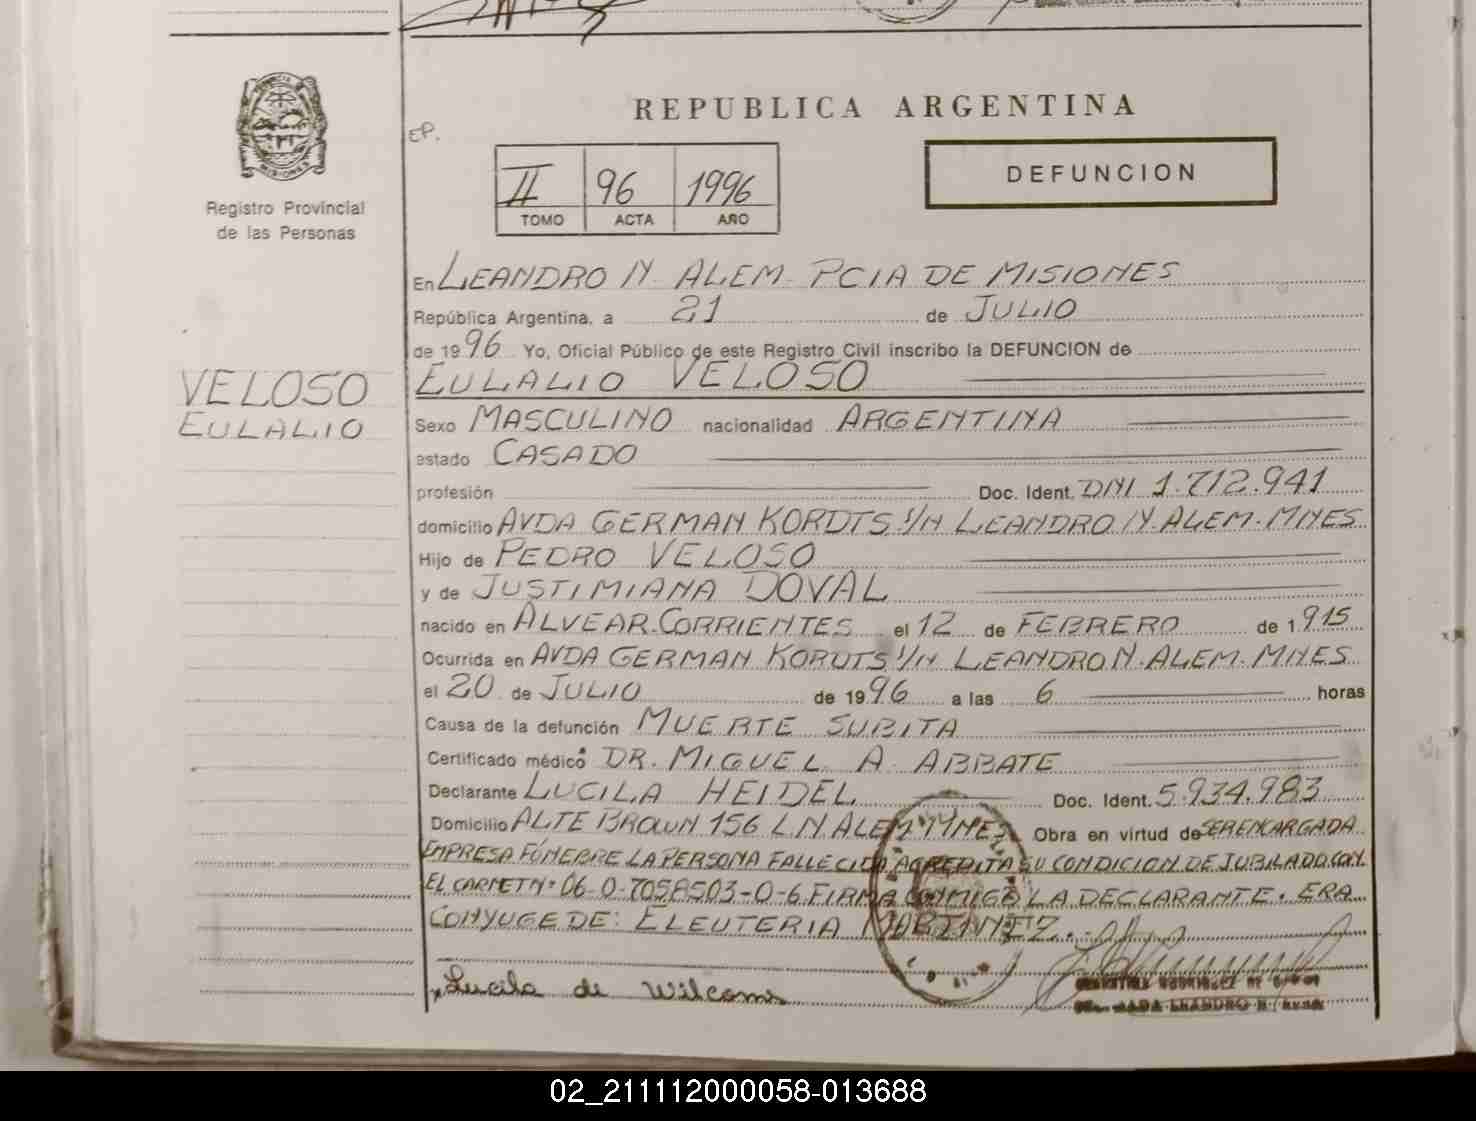 REPUBLICA ARGENTINA
EP.
II 96 1996
TOMO ACTA AÑO
DEFUNCION
PROVINCIA DE MISIONES
Registro Provincial
de las Personas
VELOSO
EULALIO
En LEANDRO N. ALEM - PCIA DE MISIONES
República Argentina, a 21 de JULIO
de 1996 Yo, Oficial Público de este Registro Civil inscribo la DEFUNCION de
EULALIO VELOSO
Sexo MASCULINO nacionalidad ARGENTINA
estado CASADO
profesión Doc. Ident. DNI 1.712.941
domicilio AVDA GERMAN KORDTS S/N LEANDRO N. ALEM. MNES
Hijo de PEDRO VELOSO
y de JUSTIMIANA DOVAL
nacido en ALVEAR. CORRIENTES el 12 de FEBRERO de 1.915
Ocurrida en AVDA GERMAN KORUTS S/N LEANDRO N. ALEM. MNES
el 20 de JULIO de 1996 a las 6 horas
Causa de la defunción MUERTE SUBITA
Certificado médico DR. MIGUEL A. ABBATE
Declarante LUCILA HEIDEL Doc. Ident. 5.934.983
Domicilio ALTE BROWN 156 L N ALEM MNES Obra en virtud de SER ENCARGADA
EMPRESA FÚNEBRE LA PERSONA FALLECIDA ACREDITA SU CONDICION DE JUBILADO CON
EL CARNET Nº 06-0-7058503-0-6 FIRMA CONMIGO LA DECLARANTE. ERA
CONYUGE DE: ELEUTERIA MARTINEZ.
Lucila de
02_211112000058-013688